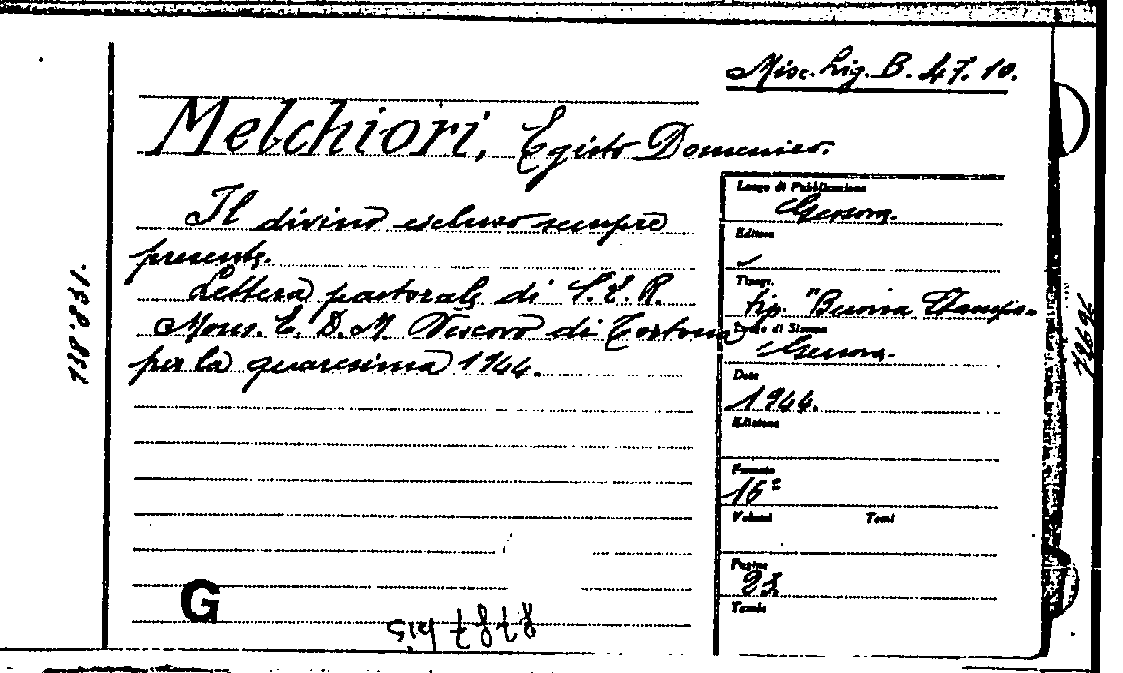 Misc. Lig. B. 47. 10.
Melchiori, Egisto Domenico.
Il divino escluso sempre
presente.
Lettera pastorale di S. E. R.
Mons. E. D. M. Vescovo di Tortona
per la quaresima 1944.
Luogo di Pubblicazione
Genova.
Editore
Tipogr.
Tip. "Buona Stampa"
Luogo di Stampa
Genova.
Data
1944.
Edizione
Formato
16°
Volumi Tomi
Pagine
Tavole
138.831.
G
7878 bis